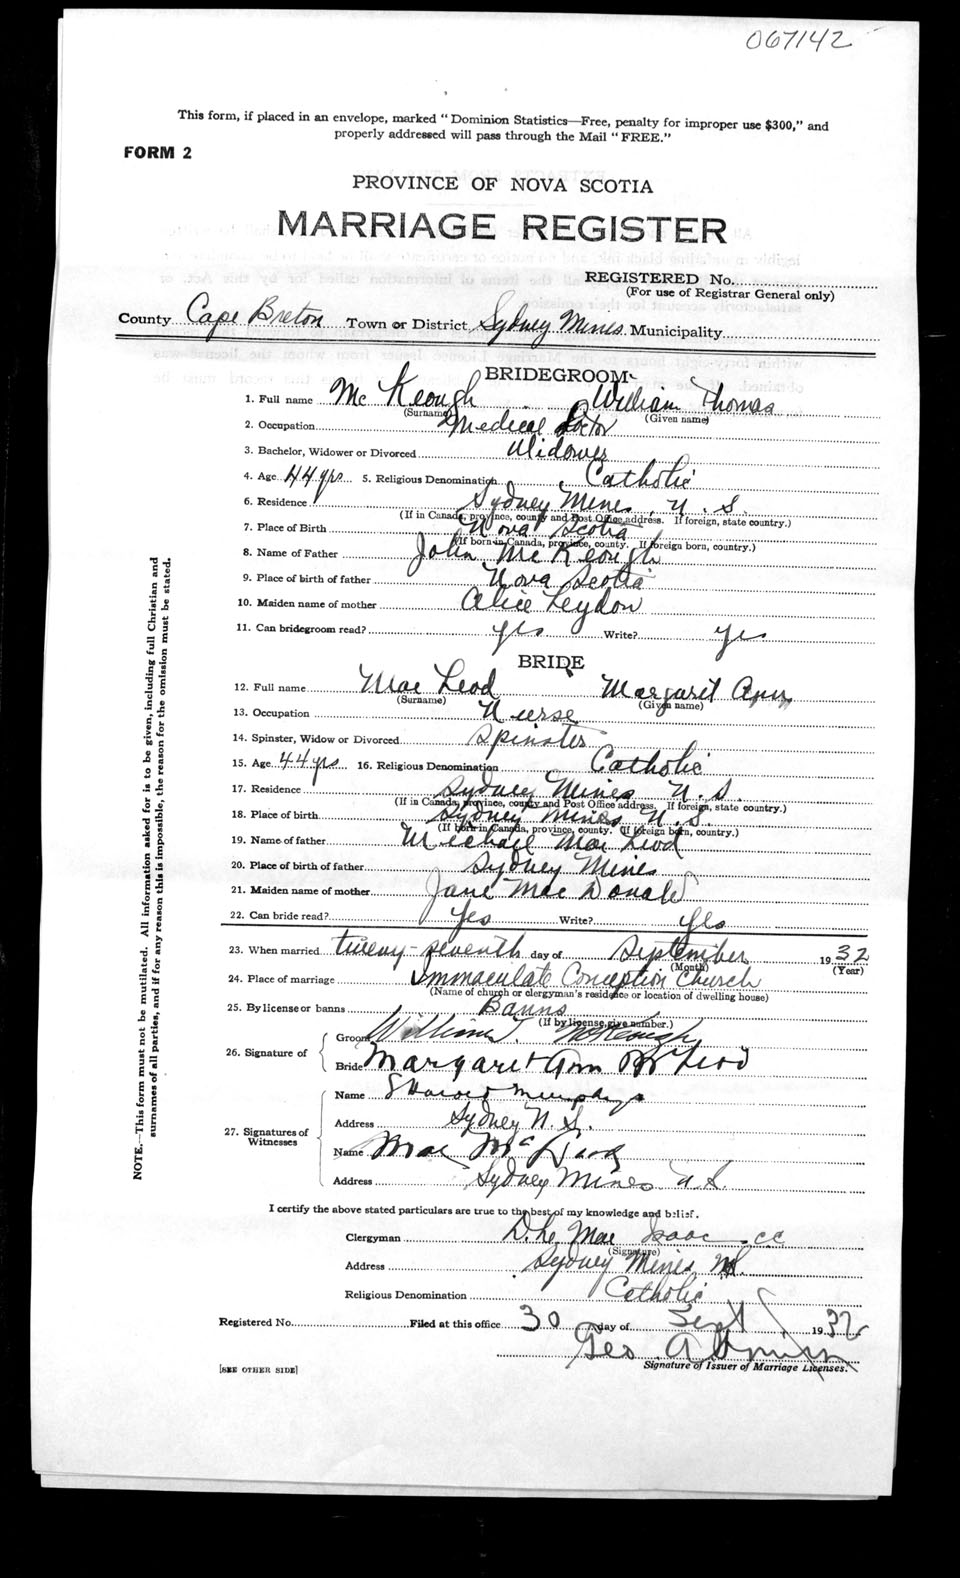 067142
This form, if placed in an envelope, marked "Dominion Statistics—Free, penalty for improper use $300," and
properly addressed will pass through the Mail "FREE."
FORM 2
PROVINCE OF NOVA SCOTIA
MARRIAGE REGISTER
REGISTERED No.
(For use of Registrar General only)
County Cape Breton Town or District Sydney Mines Municipality
BRIDEGROOM
1. Full name Mc Keough William Thomas
(Surname) (Given name)
2. Occupation Medical Doctor
3. Bachelor, Widower or Divorced Widower
4. Age 44 yrs 5. Religious Denomination Catholic
6. Residence Sydney Mines, N. S.
(If in Canada, province, county and Post Office address. If foreign, state country.)
7. Place of Birth Nova Scotia
(If born in Canada, province, county. If foreign born, country.)
8. Name of Father John Mc Keough
9. Place of birth of father Nova Scotia
10. Maiden name of mother Alice Leydon
11. Can bridegroom read? yes Write? yes
BRIDE
12. Full name Mac Leod Margaret Ann
(Surname) (Given name)
13. Occupation Nurse
14. Spinster, Widow or Divorced Spinster
15. Age 44 yrs 16. Religious Denomination Catholic
17. Residence Sydney Mines N. S.
(If in Canada, province, county and Post Office address. If foreign, state country.)
18. Place of birth Sydney Mines N. S.
(If born in Canada, province, county. If foreign born, country.)
19. Name of father Michael Mac Leod
20. Place of birth of father Sydney Mines
21. Maiden name of mother Jane Mac Donald
22. Can bride read? Yes Write? Yes
23. When married twenty-seventh day of September 1932
(Month) (Year)
24. Place of marriage Immaculate Conception Church
(Name of church or clergyman's residence or location of dwelling house)
25. By license or banns Banns
(If by license, give number.)
26. Signature of
Groom William T. McKeough
Bride Margaret Ann McLeod
27. Signatures of Witnesses
Name Murphy
Address Sydney N. S.
Name Mae Mc
Address Sydney Mines N. S.
I certify the above stated particulars are true to the best of my knowledge and belief.
Clergyman Mac Isaac
(Signature)
Address Sydney Mines NS.
Religious Denomination Catholic
Registered No. Filed at this office 30 day of Sept 1932
Geo A
Signature of Issuer of Marriage Licenses.
[SEE OTHER SIDE]
NOTE.—This form must not be mutilated. All information asked for is to be given, including full Christian and
surnames of all parties, and if for any reason this is impossible, the reason for the omission must be stated.